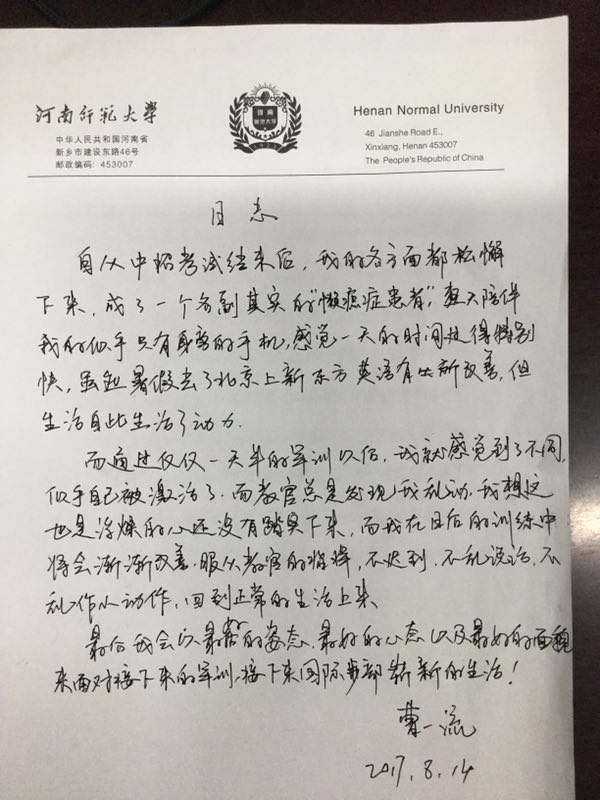 河南师范大学
中华人民共和国河南省
新乡市建设东路46号
邮政编码: 453007
河南
师范大学
1923
Henan Normal University
46 Jianshe Road E.,
Xinxiang, Henan 453007
The People's Republic of China
日志
自从中招考试结束后，我的各方面都松懈
下来，成了一个名副其实的“懒癌症患者”，整天陪伴
我的似乎只有身旁的手机，感觉一天的时间过得特别
快，虽然暑假去了北京上新东方英语有所改善，但
生活自此生活了动力.
而通过仅仅一天半的军训以后，我就感觉到了不同，
似乎自己被激活了.而教官总是发现我乱动，我想这
也是浮燥的心还没有踏实下来，而我在日后的训练中
将会渐渐改善.服从教官的指挥，不迟到，不乱说话，不
乱作小动作，回到正常的生活上来.
最后我会以最的姿态，最好的心态以及最好的面貌
来面对接下来的军训，接下来国际部崭新的生活！
曹一流
2017.8.14